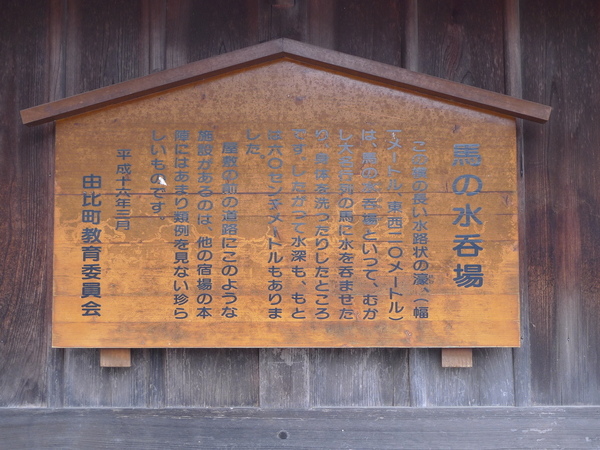 馬の水呑場
この幅の長い水路状の濠、(幅
一メートル、東西二〇メートル)
は、馬の水呑場といって、むか
し大名行列の馬に水を呑ませた
り、身体を洗ったりしたところ
です。したがって水深も、もと
は六〇センチメートルもありま
した。
屋敷の前の道路にこのような
施設があるのは、他の宿場の本
陣にはあまり類例を見ない珍ら
しいものです。
平成十六年三月
由比町教育委員会